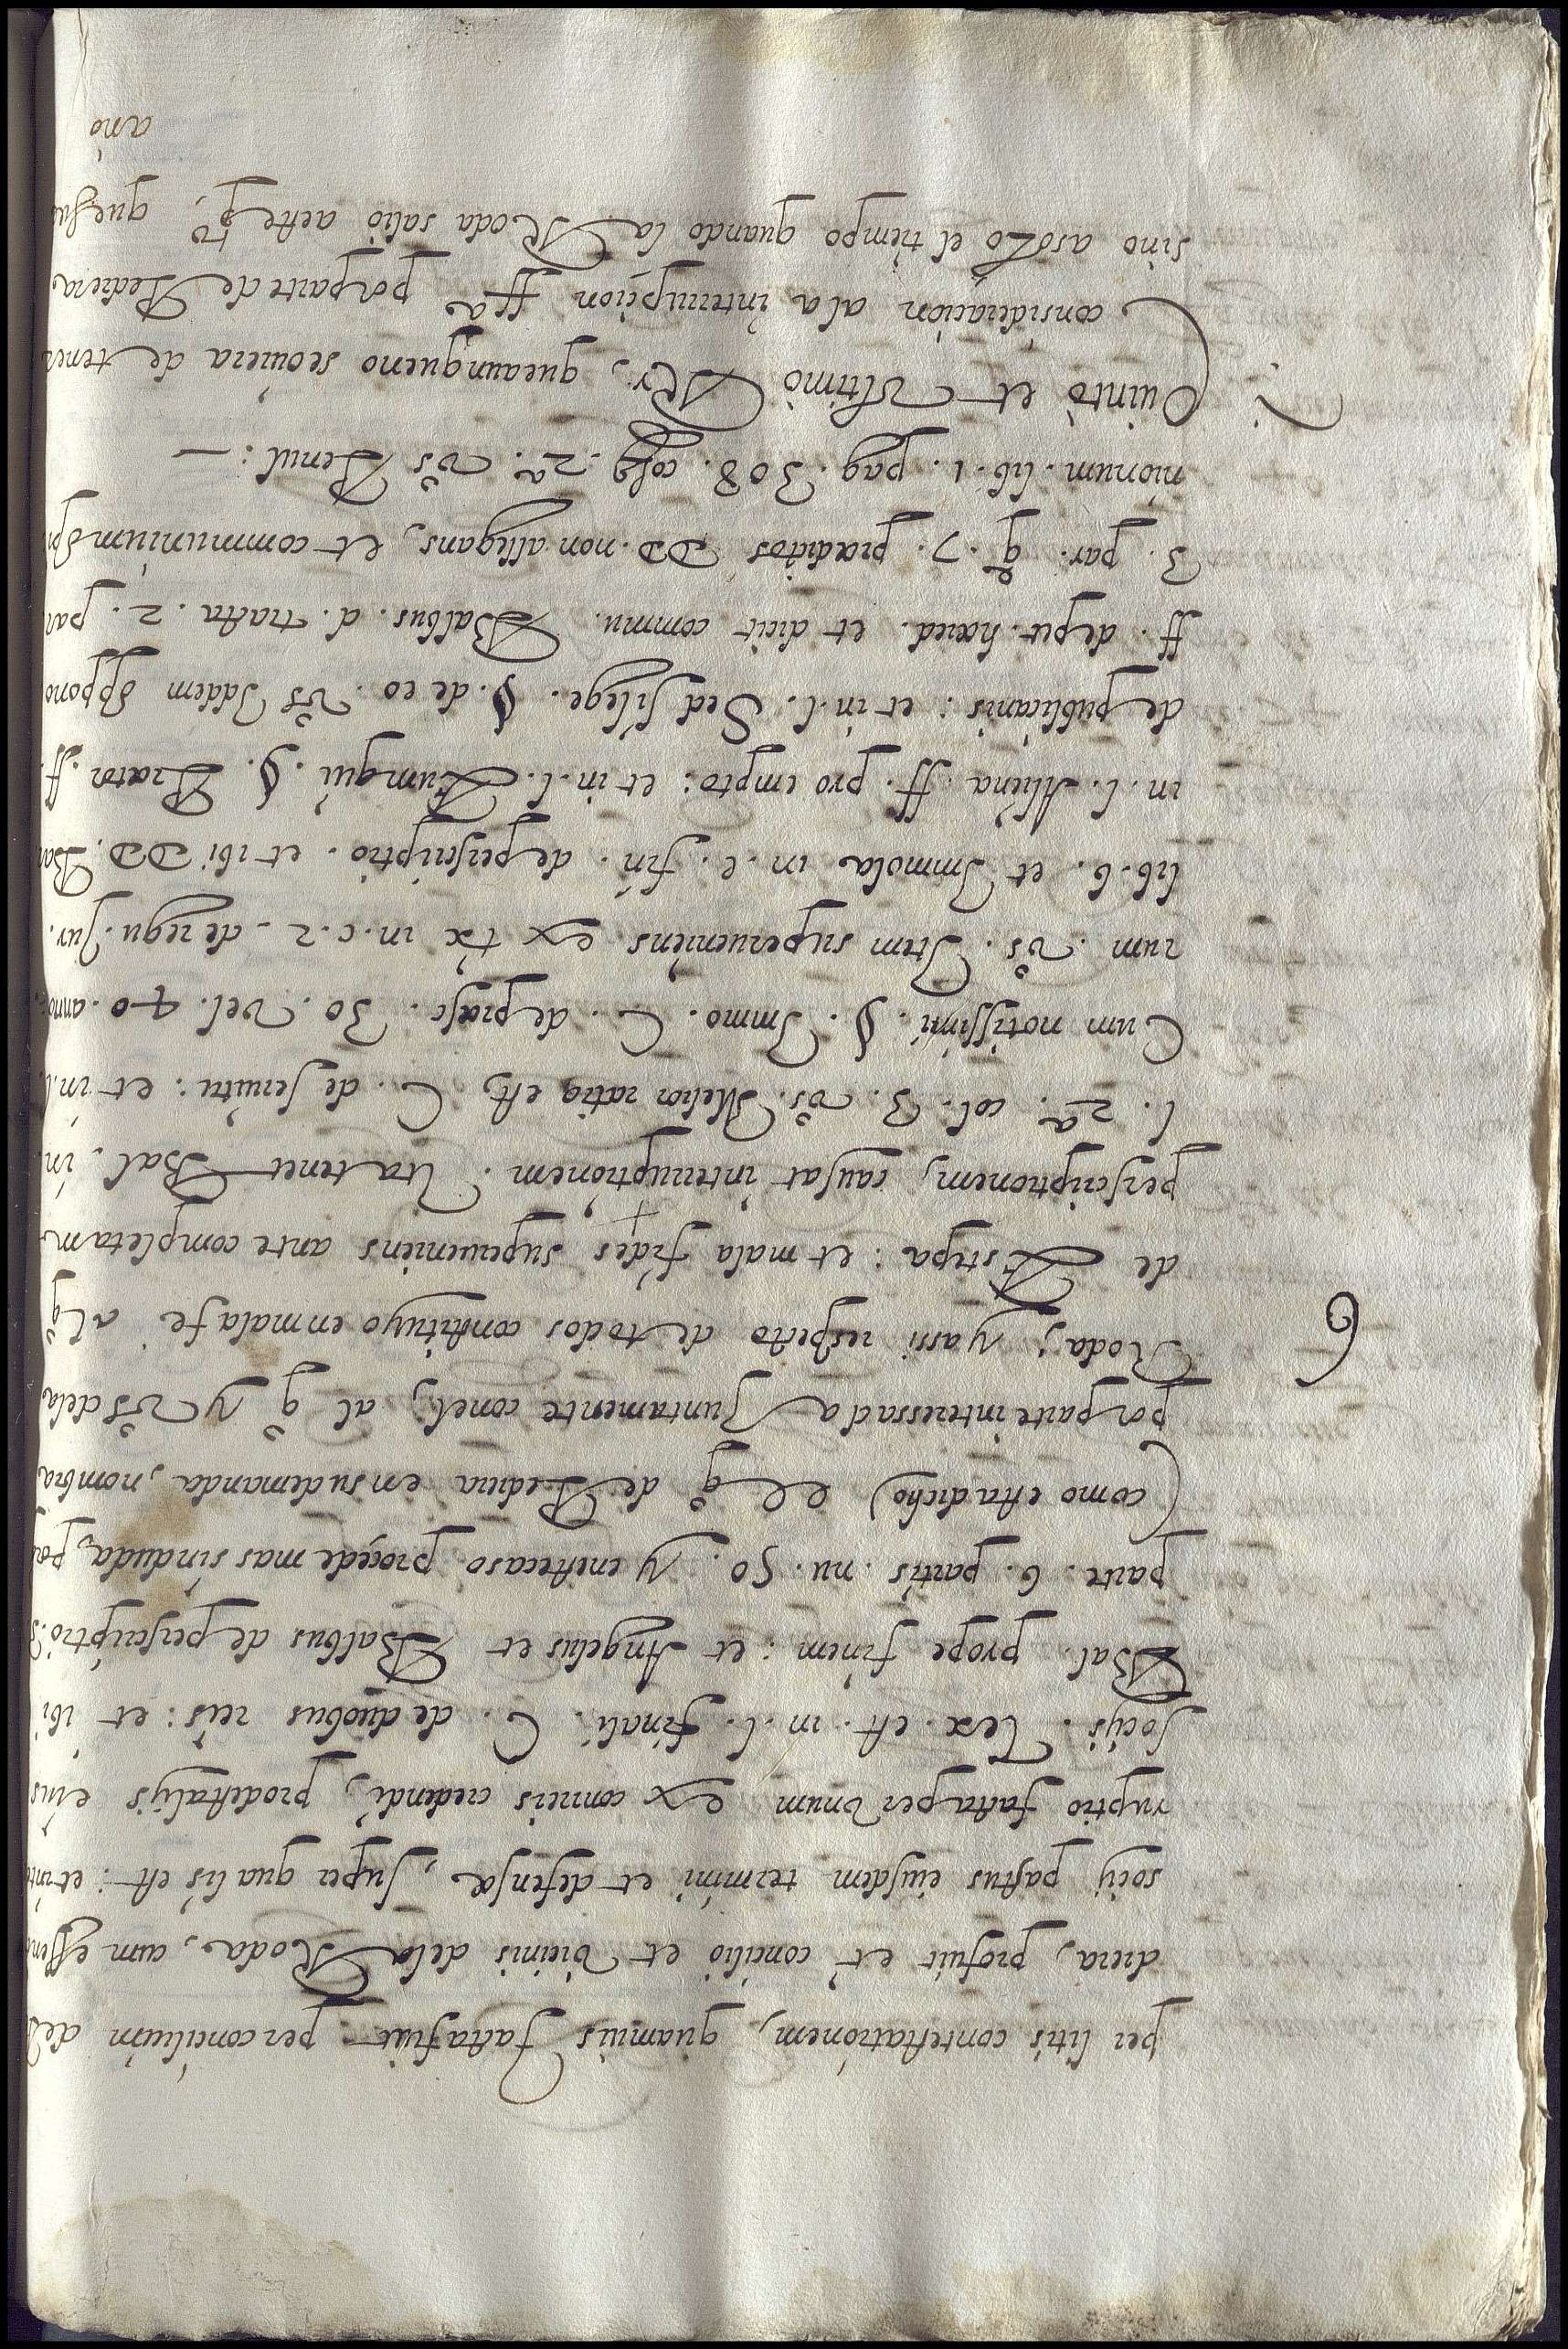 per litis contestationem, quamuis facta fuit per concilium de
diera, profuit et concilio et vicinis dela Roda, cum essent
socij pastus eiusdem termini et defensæ, super qua lis est: et inte
ruptio facta per vnum ex correis credendi, prodest alijs eius
socijs. Tex. est. in. l. finali. C. de duobus reis: et ibi
Bal. prope finem: et Angelus et Balbus de perscriptio: 3.
parte. 6. partis. nu. 50. y eneste caso proçede mas sinduda, por
(como esta dicho) el q̊ de Pediera en su demanda, nombra
por parte interessada Juntamente conel, al q̊ y vºs dela
Roda; y assi respecto de todos constituyo en mala fe al q̊
6
de Estepa: et mala fides superueniens ante completam
perscriptionem, causat interruptionem. Ita tenet Bal. in.
l. 2ª. col. 3. vs̊. Melior ratio est, C. de seruitu: et in. l.
Cum notissimi. §. Immo. C. de præsc. 30. vel. 40. anno:
rum. vs̊. Item superueniens ex tx̃ in. c. 2. de regu. Jur.
lib. 6. et Immola in. c. fin. de perscriptio. et ibi DD. Bar
in. l. Aliena. ff. pro empto: et in. l. Eum qui. §. Prætor ff.
de publicanis: et in. l. Sed si lege. §. de eo. vs̊ Idem oppono
ff. de pet. hæred. et dicit commu. Balbus. d. tracta. 2. par
3. par. q̃. 7. prædictos DD. non allegans, et communium opi
nionum. lib. 1. pag. 308. colũ. 2ª. vs̊ Penul: —
Quinto et vltimo Rr, que aunque no se ouiera de tener
consideracion ala interrupcion ff.ª por parte de Pediera
sino asolo el tiempo quando la Roda salio aeste pº, que fue
año